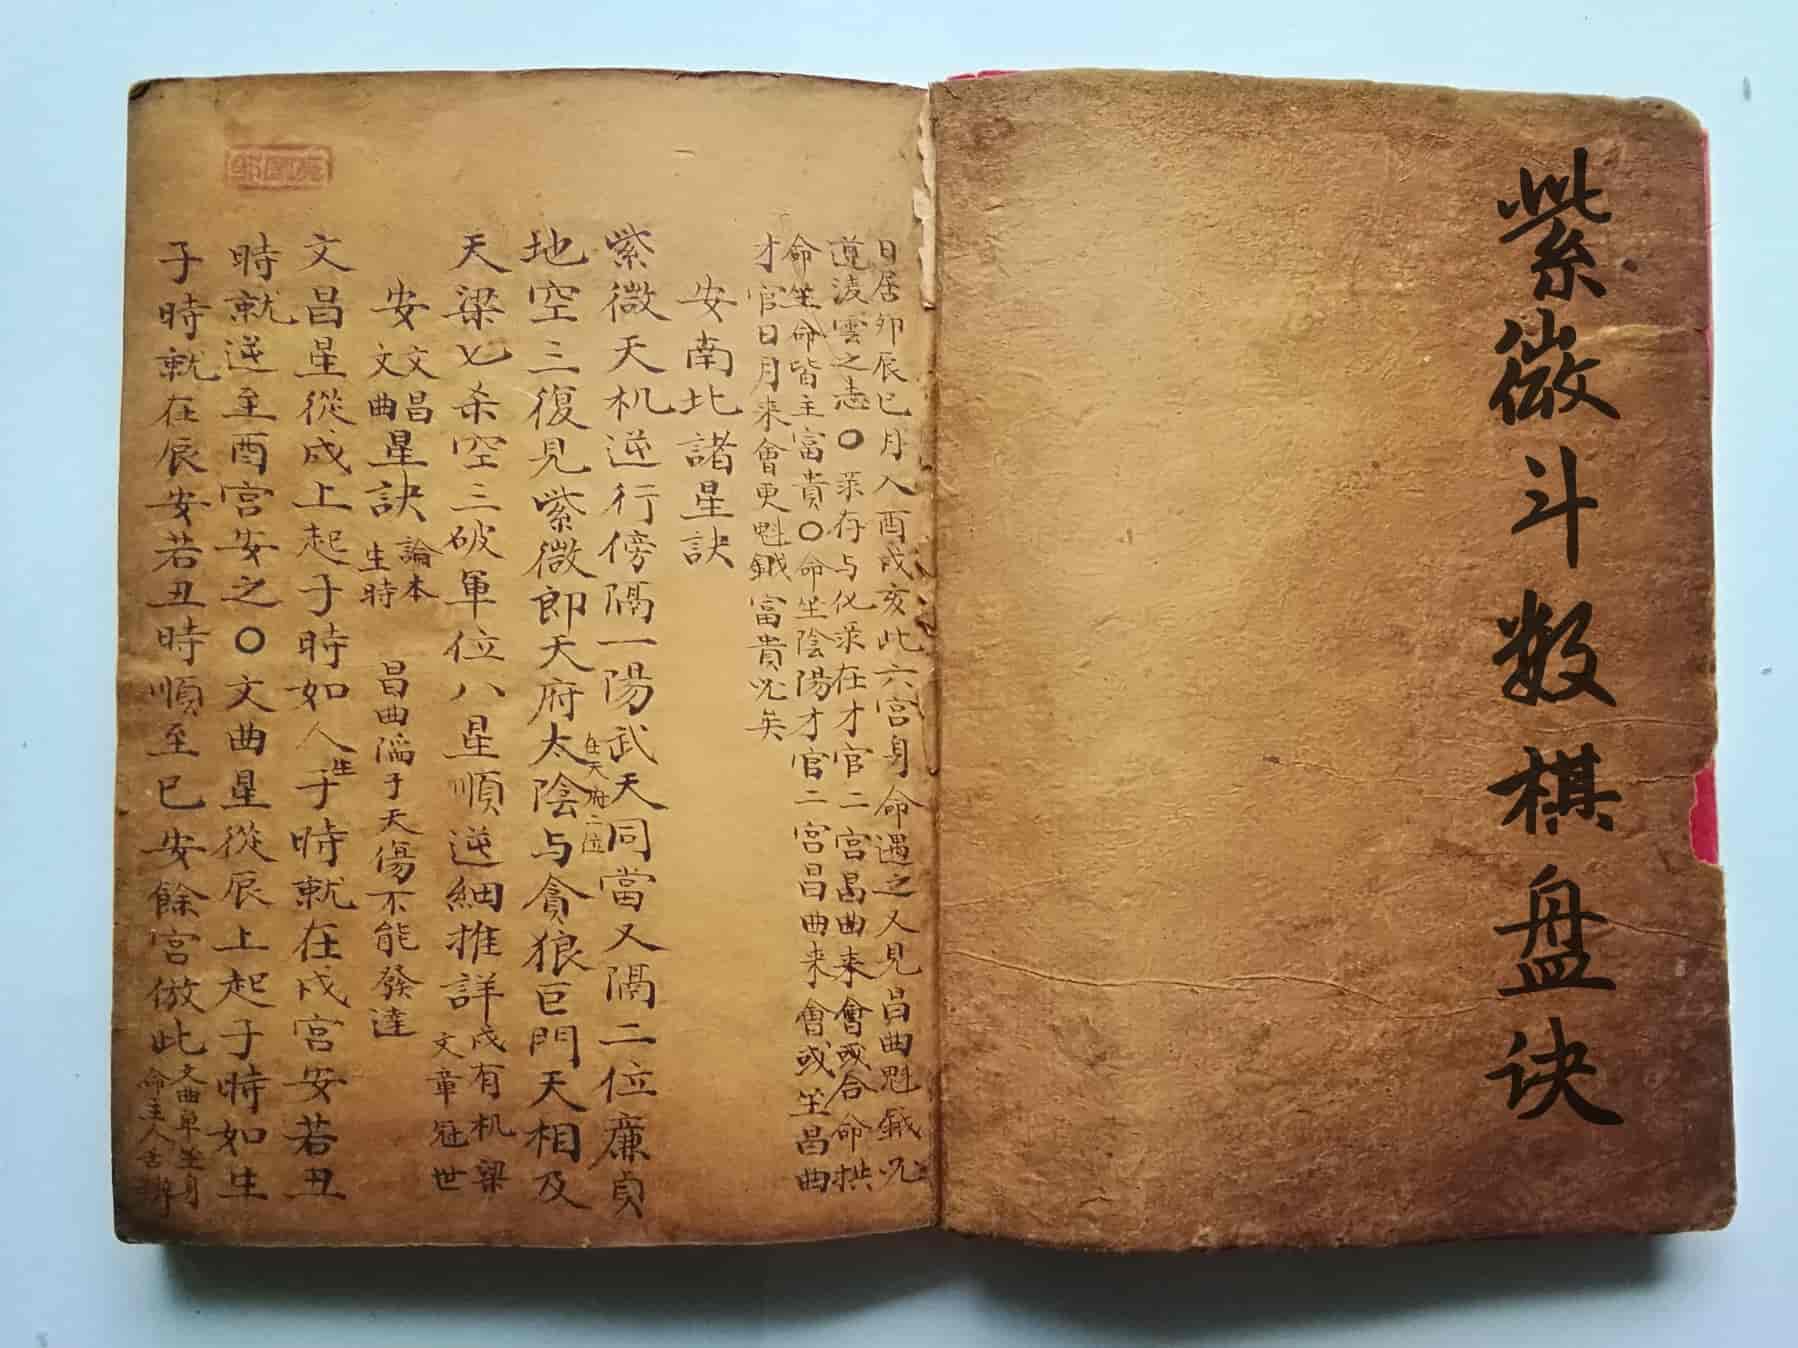 紫微斗数棋盘诀
日居卯辰巳月入酉戌亥此六宫身命遇之又見昌曲魁鉞
遵凌雲之志〇彔存与化彔在才官二宮昌曲來會或合命拱
命坐命皆主富貴〇命坐陰陽才官二宮昌曲來會或坐昌曲
才官日月来會更魁鉞富貴況矣
安南北諸星訣
紫微天机逆行傍隔一陽武天同當又隔二位廉貞
地空三復見紫微郎天府太陰与貪狼巨門天相及
在天府二位
天梁七杀空三破軍位八星順逆細推詳
戌有机梁
文章冠世
安文昌文曲星訣
論本生時
昌曲陷于天傷不能發達
文昌星從戌上起子時如人生子時就在戌宮安若丑
時就逆至酉宮安之〇文曲星從辰上起子時如生
子時就在辰安若丑時順至巳安餘宮倣此
文曲单坐身
命主人舌辯